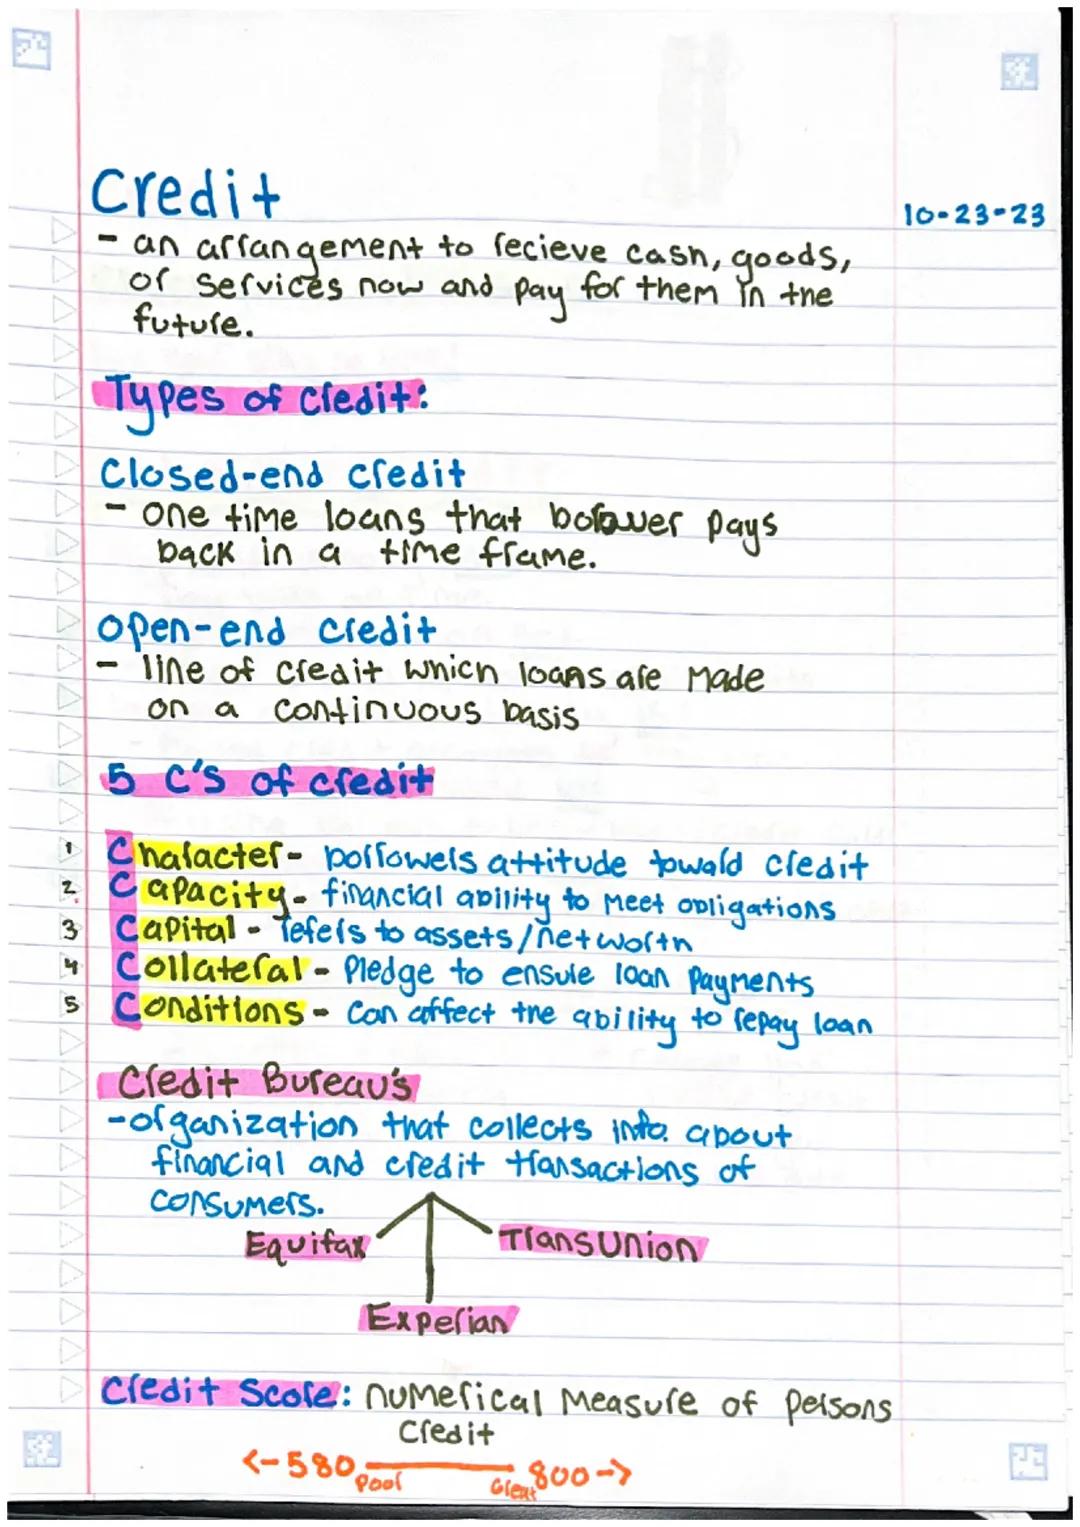 Credit
10-23-23
- an arrangement to recieve cash, goods,
or services now and pay for them in the
future.
Types of credit:
Closed-end credit
- one time loans that borower pays
back in a time frame.
Open-end credit
- line of credit which loans are made
on a continuous basis
5 C's of credit
1 Character- borrowers attitude toward credit
2 Capacity- financial ability to meet obligations
3 Capital - refers to assets/networth
4 Collateral - Pledge to ensure loan payments
5 Conditions - Can affect the ability to repay loan
Credit Bureau's
-organization that collects info. about
financial and credit transactions of
consumers.
Equifax TransUnion
Experian
Credit Score: numerical measure of persons
Credit
<-580 800->
poor Great